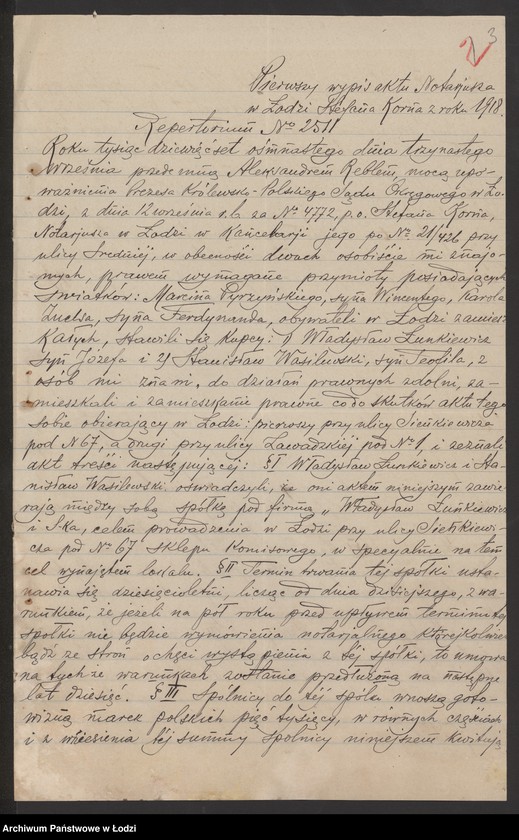 3
Pierwszy wypis aktu Notarjusza
w Łodzi Stefana Korna z roku 1918.
Repertorium No 2511
Roku tysiąc dziewięćset ośmnastego dnia trzynastego
września przedemną Aleksandrem Reblem, mocą upo-
ważnienia Prezesa Królewsko-Polskiego Sądu Okręgowego w Ło-
dzi, z dnia 12 września r.b. za No 4772, p.o. Stefana Korna,
Notarjusza w Łodzi w Kancelarji jego po No 21/426 przy
ulicy Średniej, w obecności dwoch osobiście mi znajo-
mych, prawem wymagane przymioty posiadających
świadków: Marcina Pyrzyńskiego, syna Wincentego, Karola
Luchsa, syna Ferdynanda, obywateli w Łodzi zamiesz-
kałych, stawili się kupcy: 1) Władysław Łunkiewicz
syn Józefa i 2) Stanisław Wasilewski, syn Teofila, z
osób mi znani, do działań prawnych zdolni, za-
mieszkali i zamieszkanie prawne co do skutków aktu tego
sobie obierający w Łodzi: pierwszy przy ulicy Sieńkiewicza
pod N 67, a drugi przy ulicy Zawadzkiej pod No 1, i zeznali
akt treści następującej: § I Władysław Łunkiewicz i Sta-
nisław Wasilewski oświadczyli, że oni aktem niniejszym zawie-
rają między sobą spółkę pod firmą „Władysław Łuńkiewicz
i S-ka, celem prowadzenia w Łodzi przy ulicy Sieńkiewi-
cza pod No 67 sklepu komisowego, w specyalnie na ten
cel wynajętem lokalu. § II Termin trwania tej spółki usta-
nawia się dziesięcioletni, licząc od dnia dzisiejszego, z wa-
runkiem, że jeżeli na pół roku przed upływem terminu tej
spółki nie będzie wymówienia notarjalnego którejkolwiek
bądź ze stron o chęci wystąpienia z tej spółki, to umowa
na tychże warunkach zostanie przedłużoną na następne
lat dziesięć. § III Spólnicy do tej spółki wnoszą goto-
wizną marek polskich pięć tysięcy, w równych częściach
i z wniesienia tej summy spólnicy niniejszem kwitują
Archiwum Państwowe w Łodzi